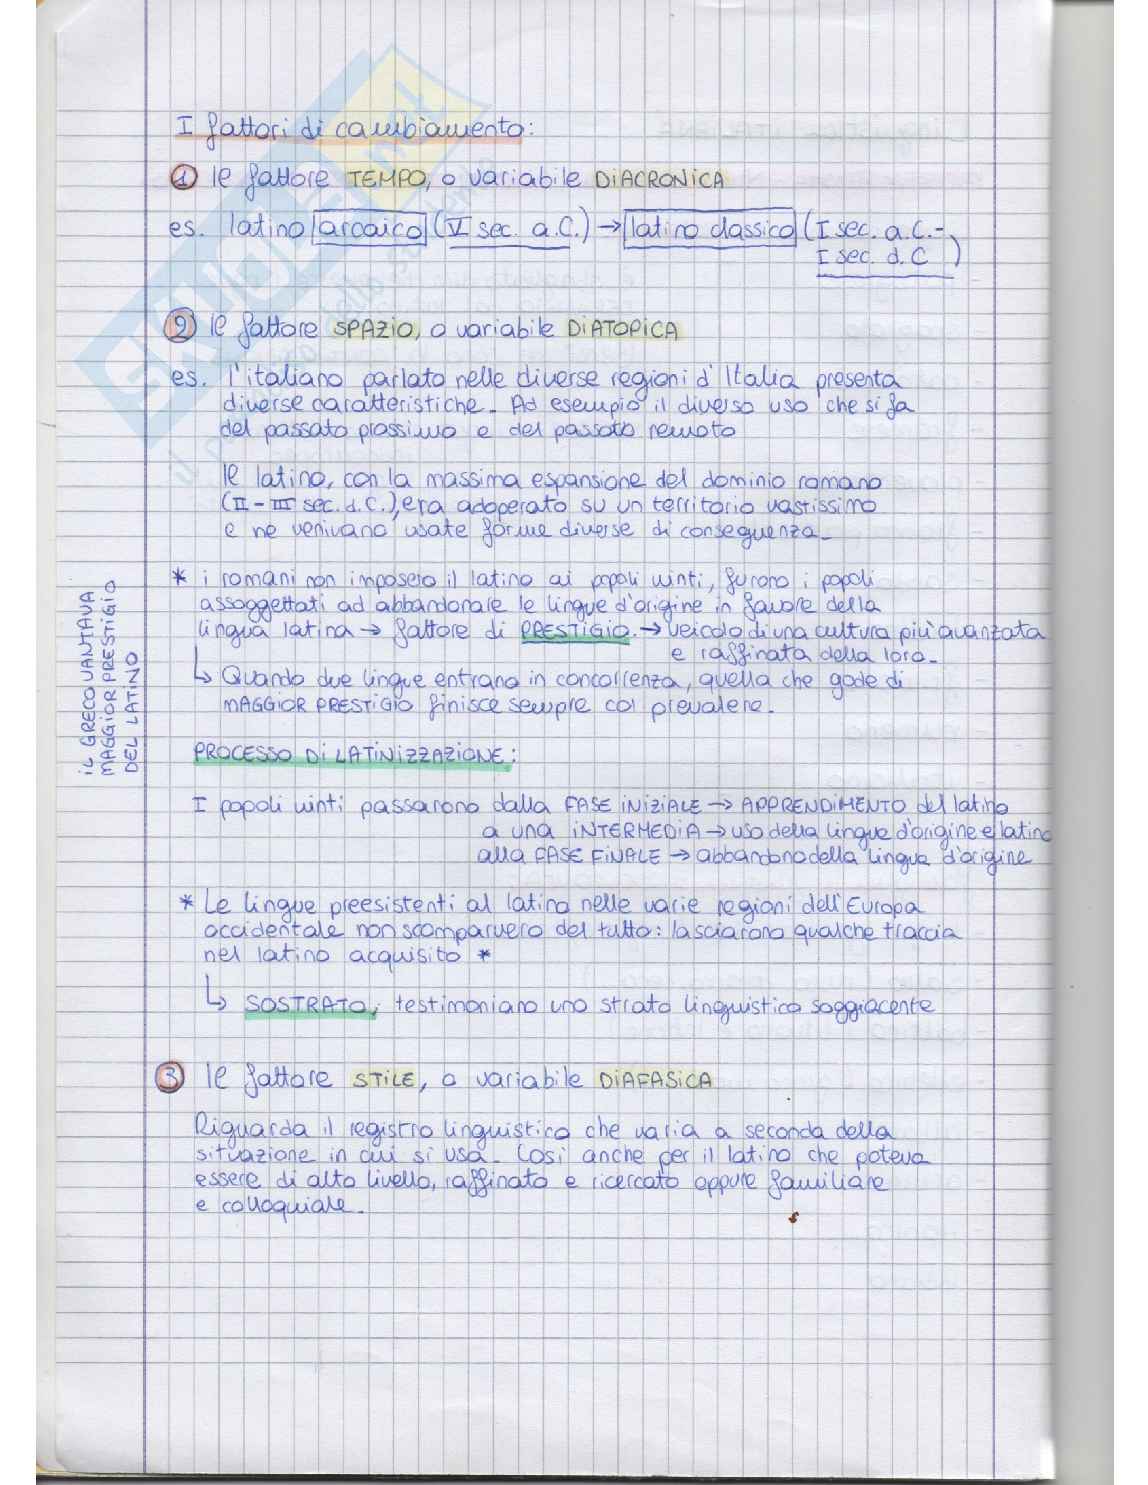 I fattori di cambiamento:
1 Il fattore TEMPO, o variabile DIACRONICA
es. latino arcaico (VI sec. a.C.) → latino classico (I sec. a.C.-
I sec. d.C)
2 Il fattore SPAZIO, o variabile DIATOPICA
es. l'italiano parlato nelle diverse regioni d'Italia presenta
diverse caratteristiche. Ad esempio il diverso uso che si fa
del passato prossimo e del passato remoto
Il latino, con la massima espansione del dominio romano
(II-III sec. d.C.), era adoperato su un territorio vastissimo
e ne venivano usate forme diverse di conseguenza.
* i romani non imposero il latino ai popoli vinti, furono i popoli
assoggettati ad abbandonare le lingue d'origine in favore della
lingua latina → fattore di PRESTIGIO. → veicolo di una cultura più avanzata
e raffinata della loro.
↳ Quando due lingue entrano in concorrenza, quella che gode di
MAGGIOR PRESTIGIO finisce sempre col prevalere.
IL GRECO VANTAVA
MAGGIOR PRESTIGIO
DEL LATINO
PROCESSO DI LATINIZZAZIONE:
I popoli vinti passarono dalla FASE INIZIALE → APPRENDIMENTO del latino
a una INTERMEDIA → uso della lingua d'origine e latino
alla FASE FINALE → abbandono della lingua d'origine
* Le lingue preesistenti al latino nelle varie regioni dell'Europa
occidentale non scomparvero del tutto: lasciarono qualche traccia
nel latino acquisito *
↳ SOSTRATO; testimoniano uno strato linguistico soggiacente
3 Il fattore STILE, o variabile DIAFASICA
Riguarda il registro linguistico che varia a seconda della
situazione in cui si usa. Così anche per il latino che poteva
essere di alto livello, raffinato e ricercato oppure familiare
e colloquiale.